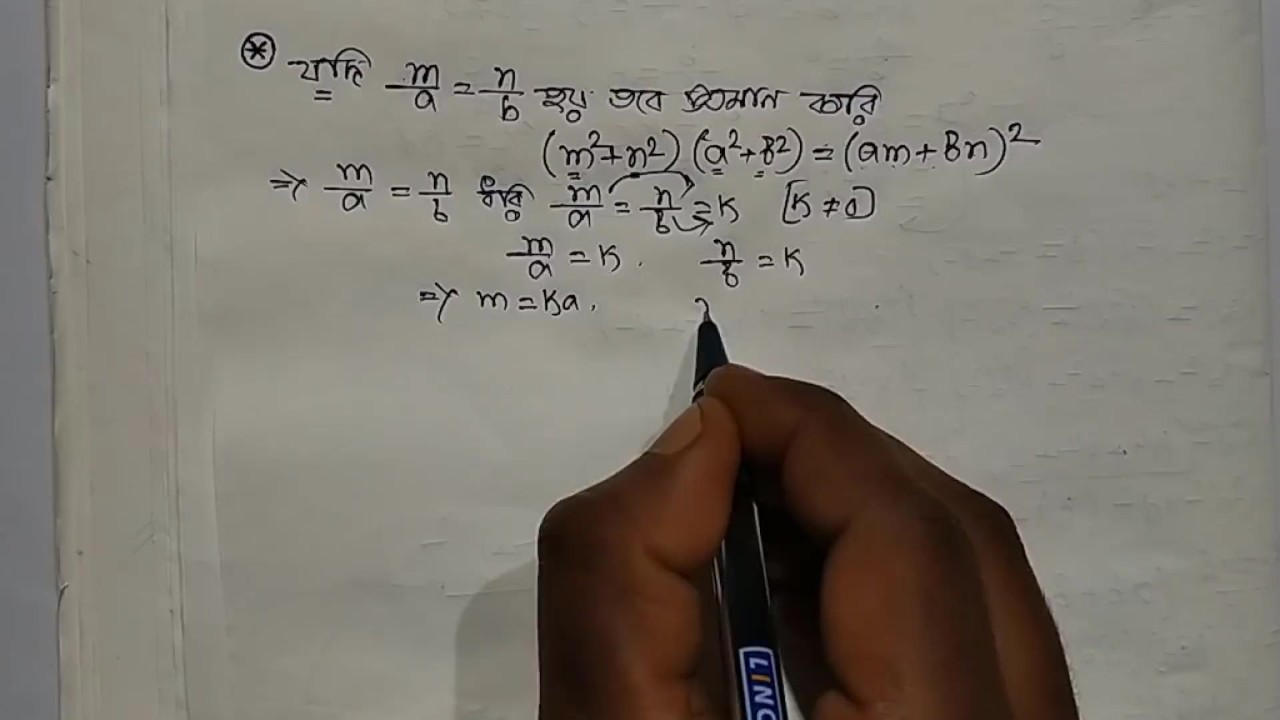 ⊛ যদি m/a = n/b হয় তবে প্রমান করি
(m²+n²) (a²+b²) = (am+bn)²
⇒ m/a = n/b ধরি m/a = n/b = K [K ≠ 0]
m/a = K. n/b = K
⇒ m = Ka,
LINC